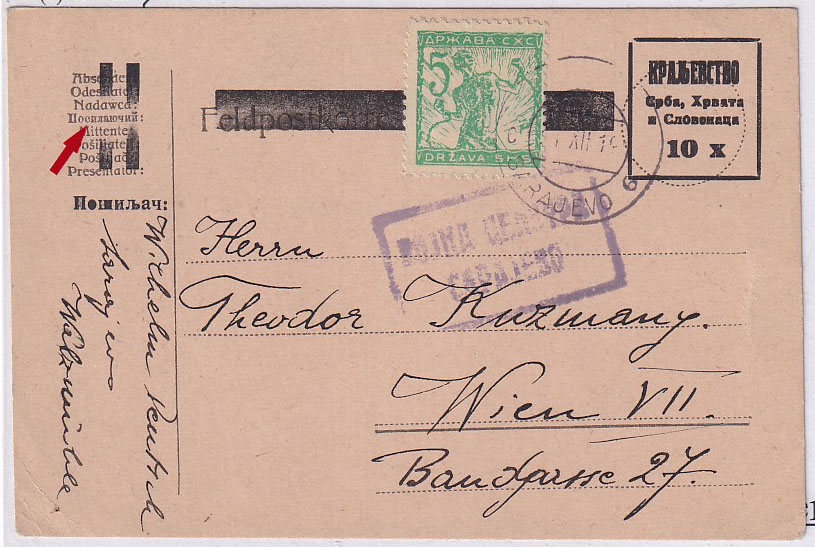 Absender:
Odesílatel:
Nadawca:
Посилаючий:
Mittente:
Pošiljatelj:
Pošiljač:
Presentator:
Пошиљач:
Wilhelm
Sarajevo
Feldpostkarte
ДРЖАВА СХС
5
DRŽAVA SHS
XII 19
SARAJEVO 6
КРАЉЕВСТВО
Срба, Хрвата
и Словенаца
10 x
САРАЈЕВО
Herrn
Theodor Kuzmany.
Wien VII.
Bandgasse 27.